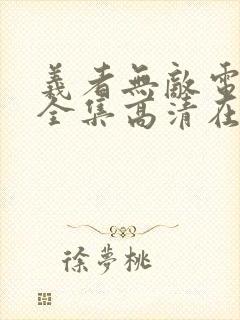 義者無敵電
全集高清在
徐夢桃